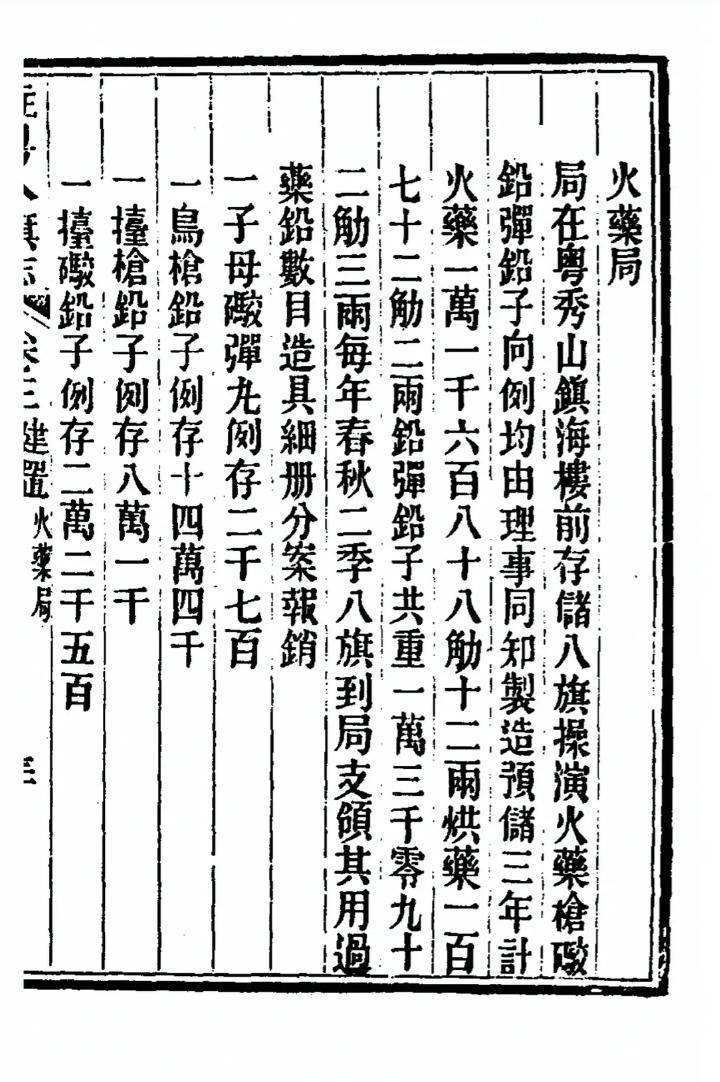 火藥局
局在粵秀山鎮海樓前存儲八旗操演火藥槍礮
鉛彈鉛子向例均由理事同知製造預儲三年計
火藥一萬一千六百八十八觔十二兩烘藥一百
七十二觔二兩鉛彈鉛子共重一萬三千零九十
二觔三兩每年春秋二季八旗到局支領其用過
藥鉛數目造具細册分案報銷
一子母礮彈九例存二千七百
一鳥槍鉛子例存十四萬四千
一擡槍鉛子例存八萬一千
一擡礮鉛子例存二萬二千五百
八旗志 卷三建置火藥局 三